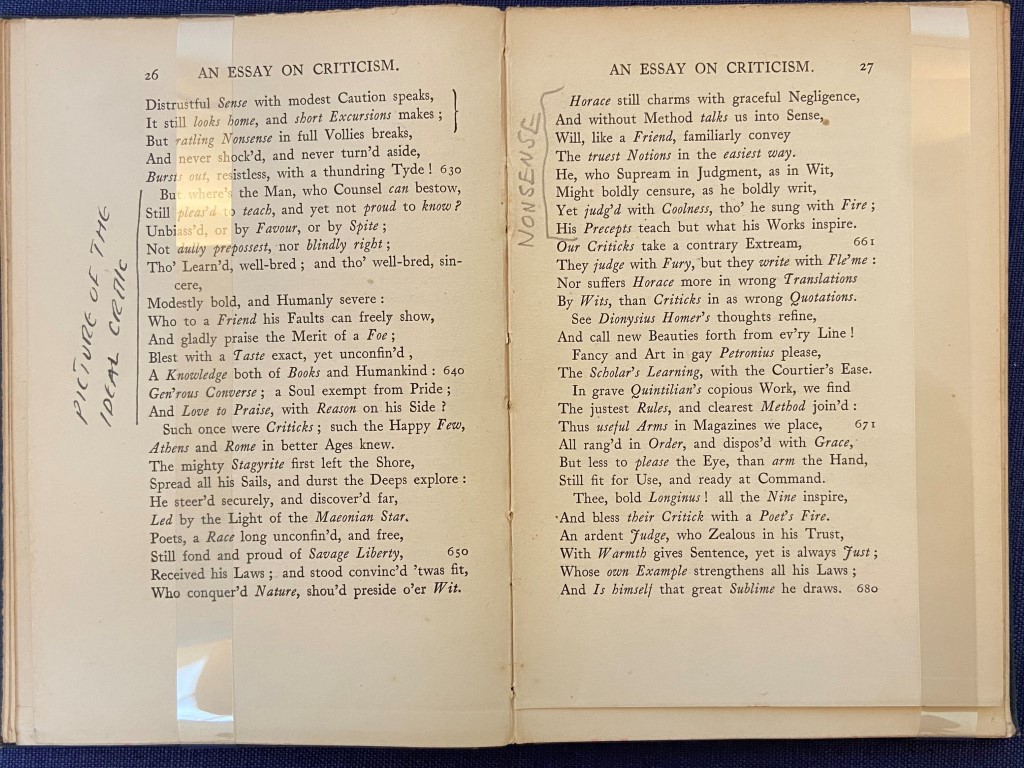 26 AN ESSAY ON CRITICISM.
Distrustful Sense with modest Caution speaks,
It still looks home, and short Excursions makes ;
But ratling Nonsense in full Vollies breaks,
And never shock'd, and never turn'd aside,
Bursts out, resistless, with a thundring Tyde ! 630
But where's the Man, who Counsel can bestow,
Still pleas'd to teach, and yet not proud to know ?
Unbiass'd, or by Favour, or by Spite ;
Not dully prepossest, nor blindly right ;
Tho' Learn'd, well-bred ; and tho' well-bred, sin-
cere,
Modestly bold, and Humanly severe :
Who to a Friend his Faults can freely show,
And gladly praise the Merit of a Foe ;
Blest with a Taste exact, yet unconfin'd ,
A Knowledge both of Books and Humankind : 640
Gen'rous Converse ; a Soul exempt from Pride ;
And Love to Praise, with Reason on his Side ?
Such once were Criticks ; such the Happy Few,
Athens and Rome in better Ages knew.
The mighty Stagyrite first left the Shore,
Spread all his Sails, and durst the Deeps explore :
He steer'd securely, and discover'd far,
Led by the Light of the Maeonian Star.
Poets, a Race long unconfin'd, and free,
Still fond and proud of Savage Liberty, 650
Received his Laws ; and stood convinc'd 'twas fit,
Who conquer'd Nature, shou'd preside o'er Wit.
PICTURE OF THE
IDEAL CRITIC
AN ESSAY ON CRITICISM. 27
Horace still charms with graceful Negligence,
And without Method talks us into Sense,
Will, like a Friend, familiarly convey
The truest Notions in the easiest way.
He, who Supream in Judgment, as in Wit,
Might boldly censure, as he boldly writ,
Yet judg'd with Coolness, tho' he sung with Fire ;
His Precepts teach but what his Works inspire.
Our Criticks take a contrary Extream, 661
They judge with Fury, but they write with Fle'me :
Nor suffers Horace more in wrong Translations
By Wits, than Criticks in as wrong Quotations.
See Dionysius Homer's thoughts refine,
And call new Beauties forth from ev'ry Line !
Fancy and Art in gay Petronius please,
The Scholar's Learning, with the Courtier's Ease.
In grave Quintilian's copious Work, we find
The justest Rules, and clearest Method join'd :
Thus useful Arms in Magazines we place, 671
All rang'd in Order, and dispos'd with Grace,
But less to please the Eye, than arm the Hand,
Still fit for Use, and ready at Command.
Thee, bold Longinus ! all the Nine inspire,
And bless their Critick with a Poet's Fire.
An ardent Judge, who Zealous in his Trust,
With Warmth gives Sentence, yet is always Just ;
Whose own Example strengthens all his Laws ;
And Is himself that great Sublime he draws. 680
NONSENSE